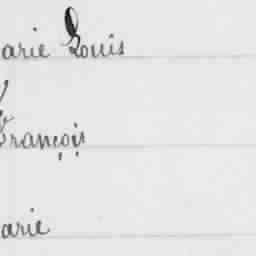 arie Louis
François
arie